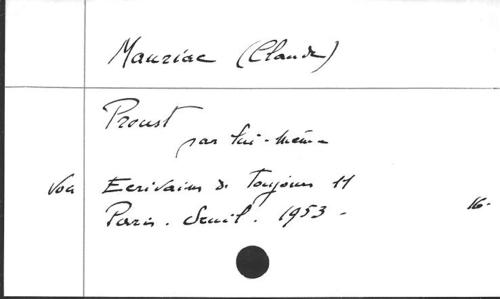 Mauriac (Claude)
Proust
par lui-même
Voa Ecrivains de Toujours 11
Paris. Seuil. 1953 - 16-